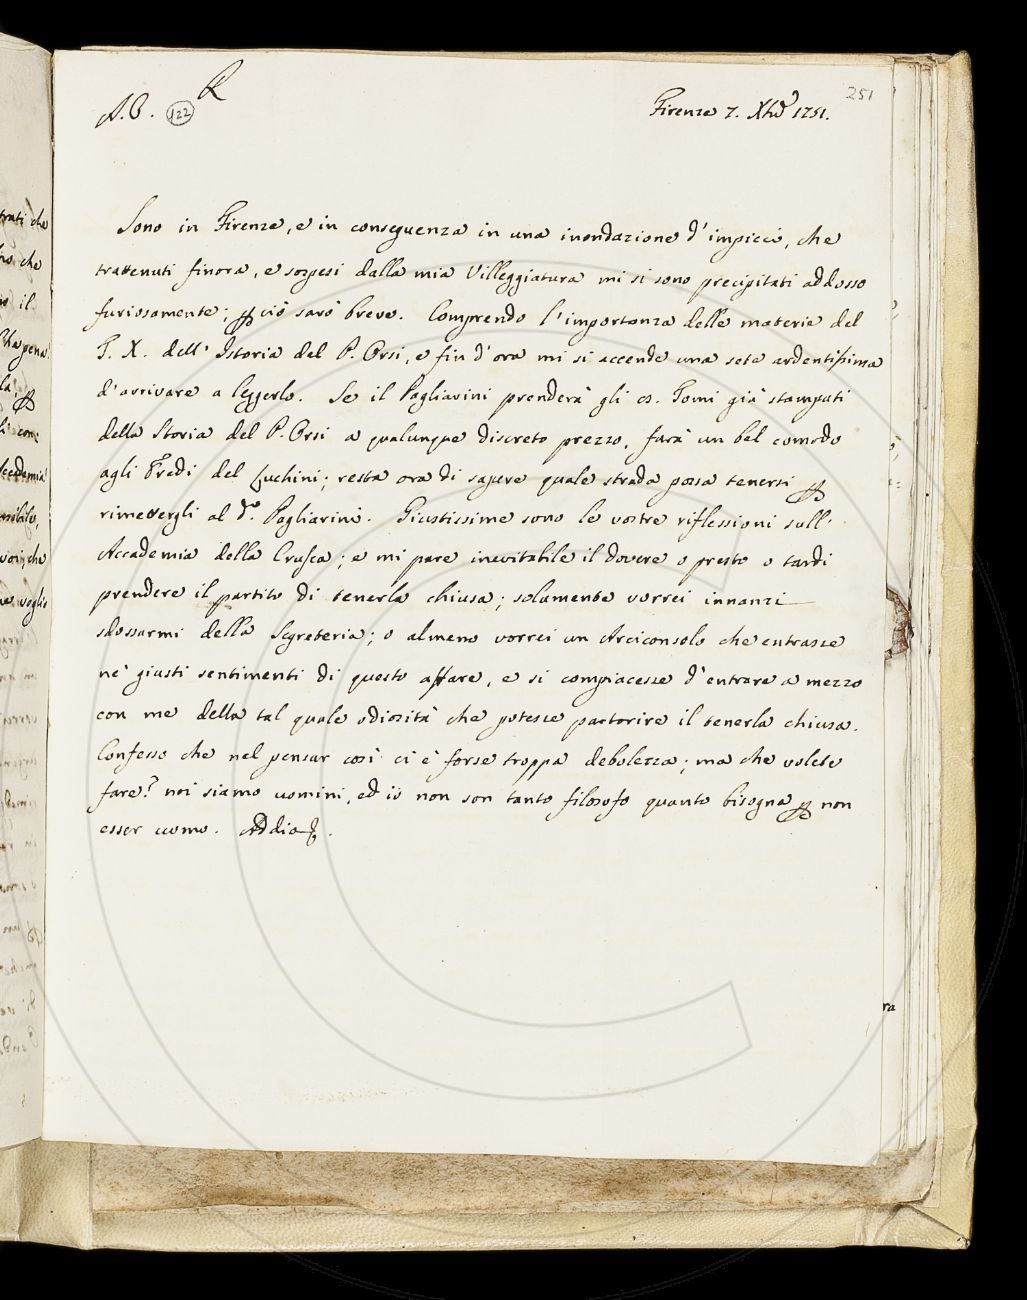 A.B. 122 R
251
Firenze 7. Xbre 1751.
Sono in Firenze, e in conseguenza in una inondazione d'impicci, che
trattenuti finora, e sospesi dalla mia Villeggiatura mi si sono precipitati addosso
furiosamente; ꝑ ciò sarò breve. Comprendo l'importanza delle materie del
T. X. dell' Istoria del P. Orsi, e fin d'ora mi si accende una sete ardentissima
d'arrivare a leggerlo. Se il Pagliarini prenderà gli es. Tomi già stampati
della Storia del P. Orsi a qualunque discreto prezzo, farà un bel comodo
agli Eredi del Luchini; resta ora di sapere quale strada possa tenersi ꝑ
rimettergli al do. Pagliarini. Giustissime sono le vostre riflessioni sull'
Accademia della Crusca; e mi pare inevitabile il dovere o presto o tardi
prendere il partito di tenerla chiusa; solamente vorrei innanzi
sdossarmi della Segreteria; o almeno vorrei un Arciconsolo che entrasse
ne' giusti sentimenti di questo affare, e si compiacesse d'entrare a mezzo
con me della tal quale odiosità che potesse partorire il tenerla chiusa.
Confesso che nel pensar così ci è forse troppa debolezza; ma che volete
fare? noi siamo uomini, ed iò non son tanto filosofo quanto bisogna ꝑ non
esser uomo. Addio.